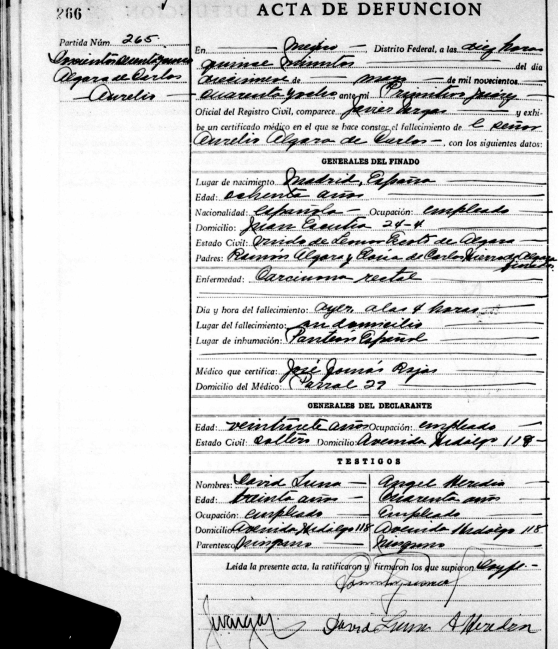 266
ACTA DE DEFUNCION
Partida Núm. 265
Algara de Carlos
Aurelio
En Mejico Distrito Federal, a las diez horas
quince minutos del día
de mayo de mil novecientos
cuarenta y ante mí Primitivo Juárez
Oficial del Registro Civil, comparece Javier Vargas y exhi-
be un certificado médico en el que se hace constar el fallecimiento de l señor
Aurelio Algara de Carlos, con los siguientes datos:
GENERALES DEL FINADO
Lugar de nacimiento Madrid, España
Edad: ochenta años
Nacionalidad: Española Ocupación: empleado
Domicilio: Juan Escutia 24-4
Estado Civil: Viudo de Leonor de Algara
Padres: Ramón Algara y de Carlos de Algara
finados
Enfermedad: Carcinoma rectal
Día y hora del fallecimiento: ayer, a las 4 horas
Lugar del fallecimiento: su domicilio
Lugar de inhumación: Panteón Español
Médico que certifica: José Tomás Rojas
Domicilio del Médico: Parral 29
GENERALES DEL DECLARANTE
Edad: veintisiete años Ocupación: empleado
Estado Civil: soltero Domicilio: Avenida Hidalgo 118
TESTIGOS
Nombres: David Luna Angel Heredia
Edad: treinta años cuarenta años
Ocupación: empleado empleado
Domicilio Avenida Hidalgo 118 Avenida Hidalgo 118
Parentesco ninguno ninguno
Leída la presente acta, la ratificaron y firmaron los que supieron Doy fe.
JVargas David Luna A Heredia